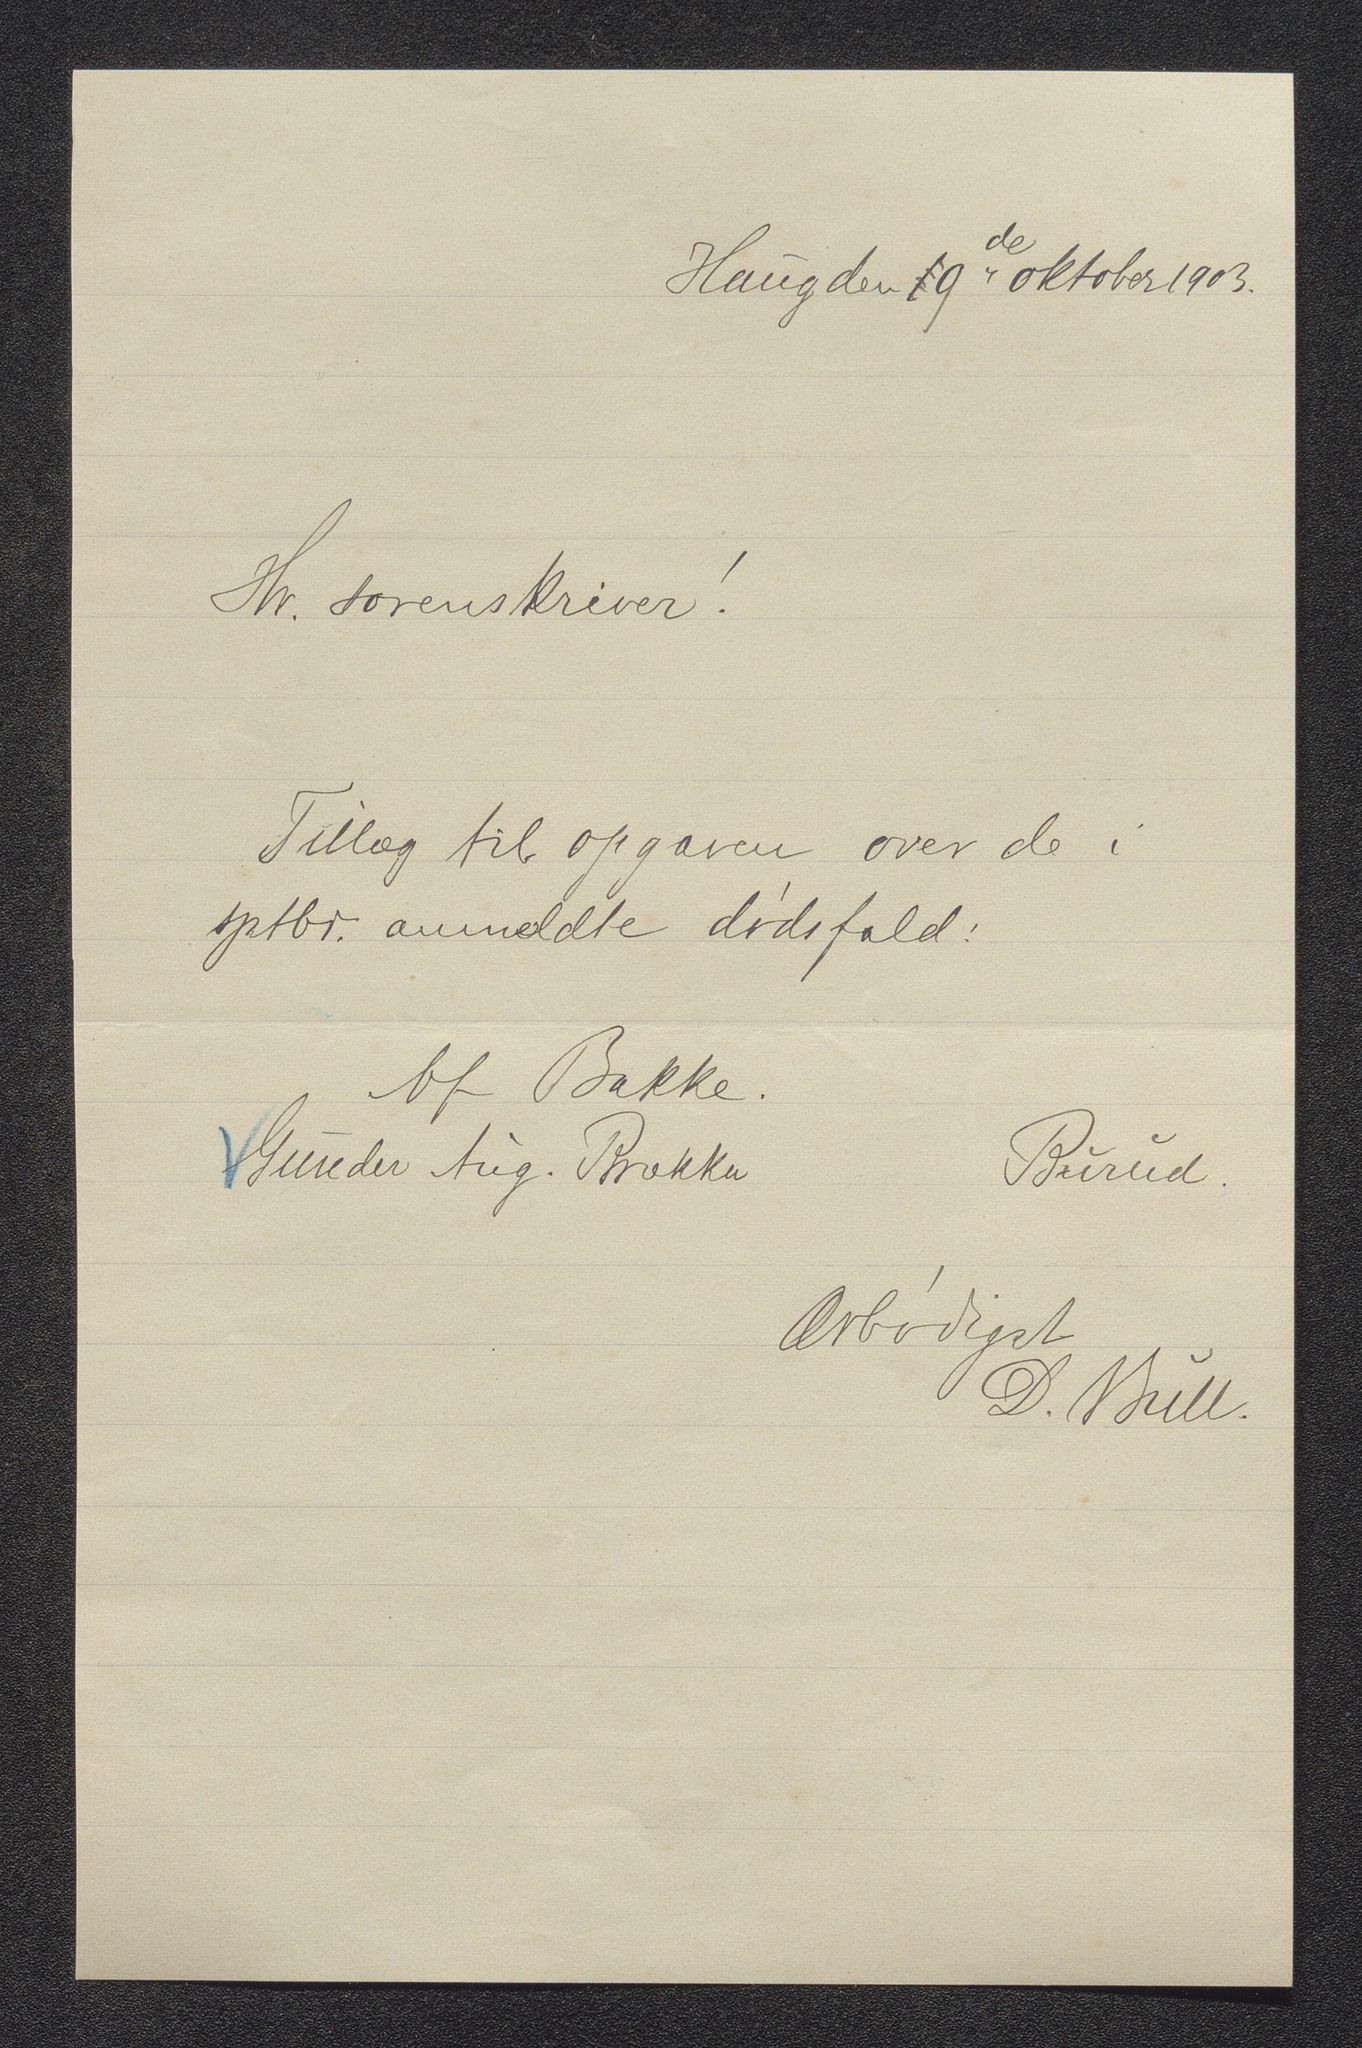 Haug den 9de oktober 1903.
Hr. sorenskriver!
Tillæg til opgaven over de i
sptbr. anmeldte dødsfald:
Af Bakke.
Gunder Aug. Brække Burud.
Ærbødigst
D. Bull.